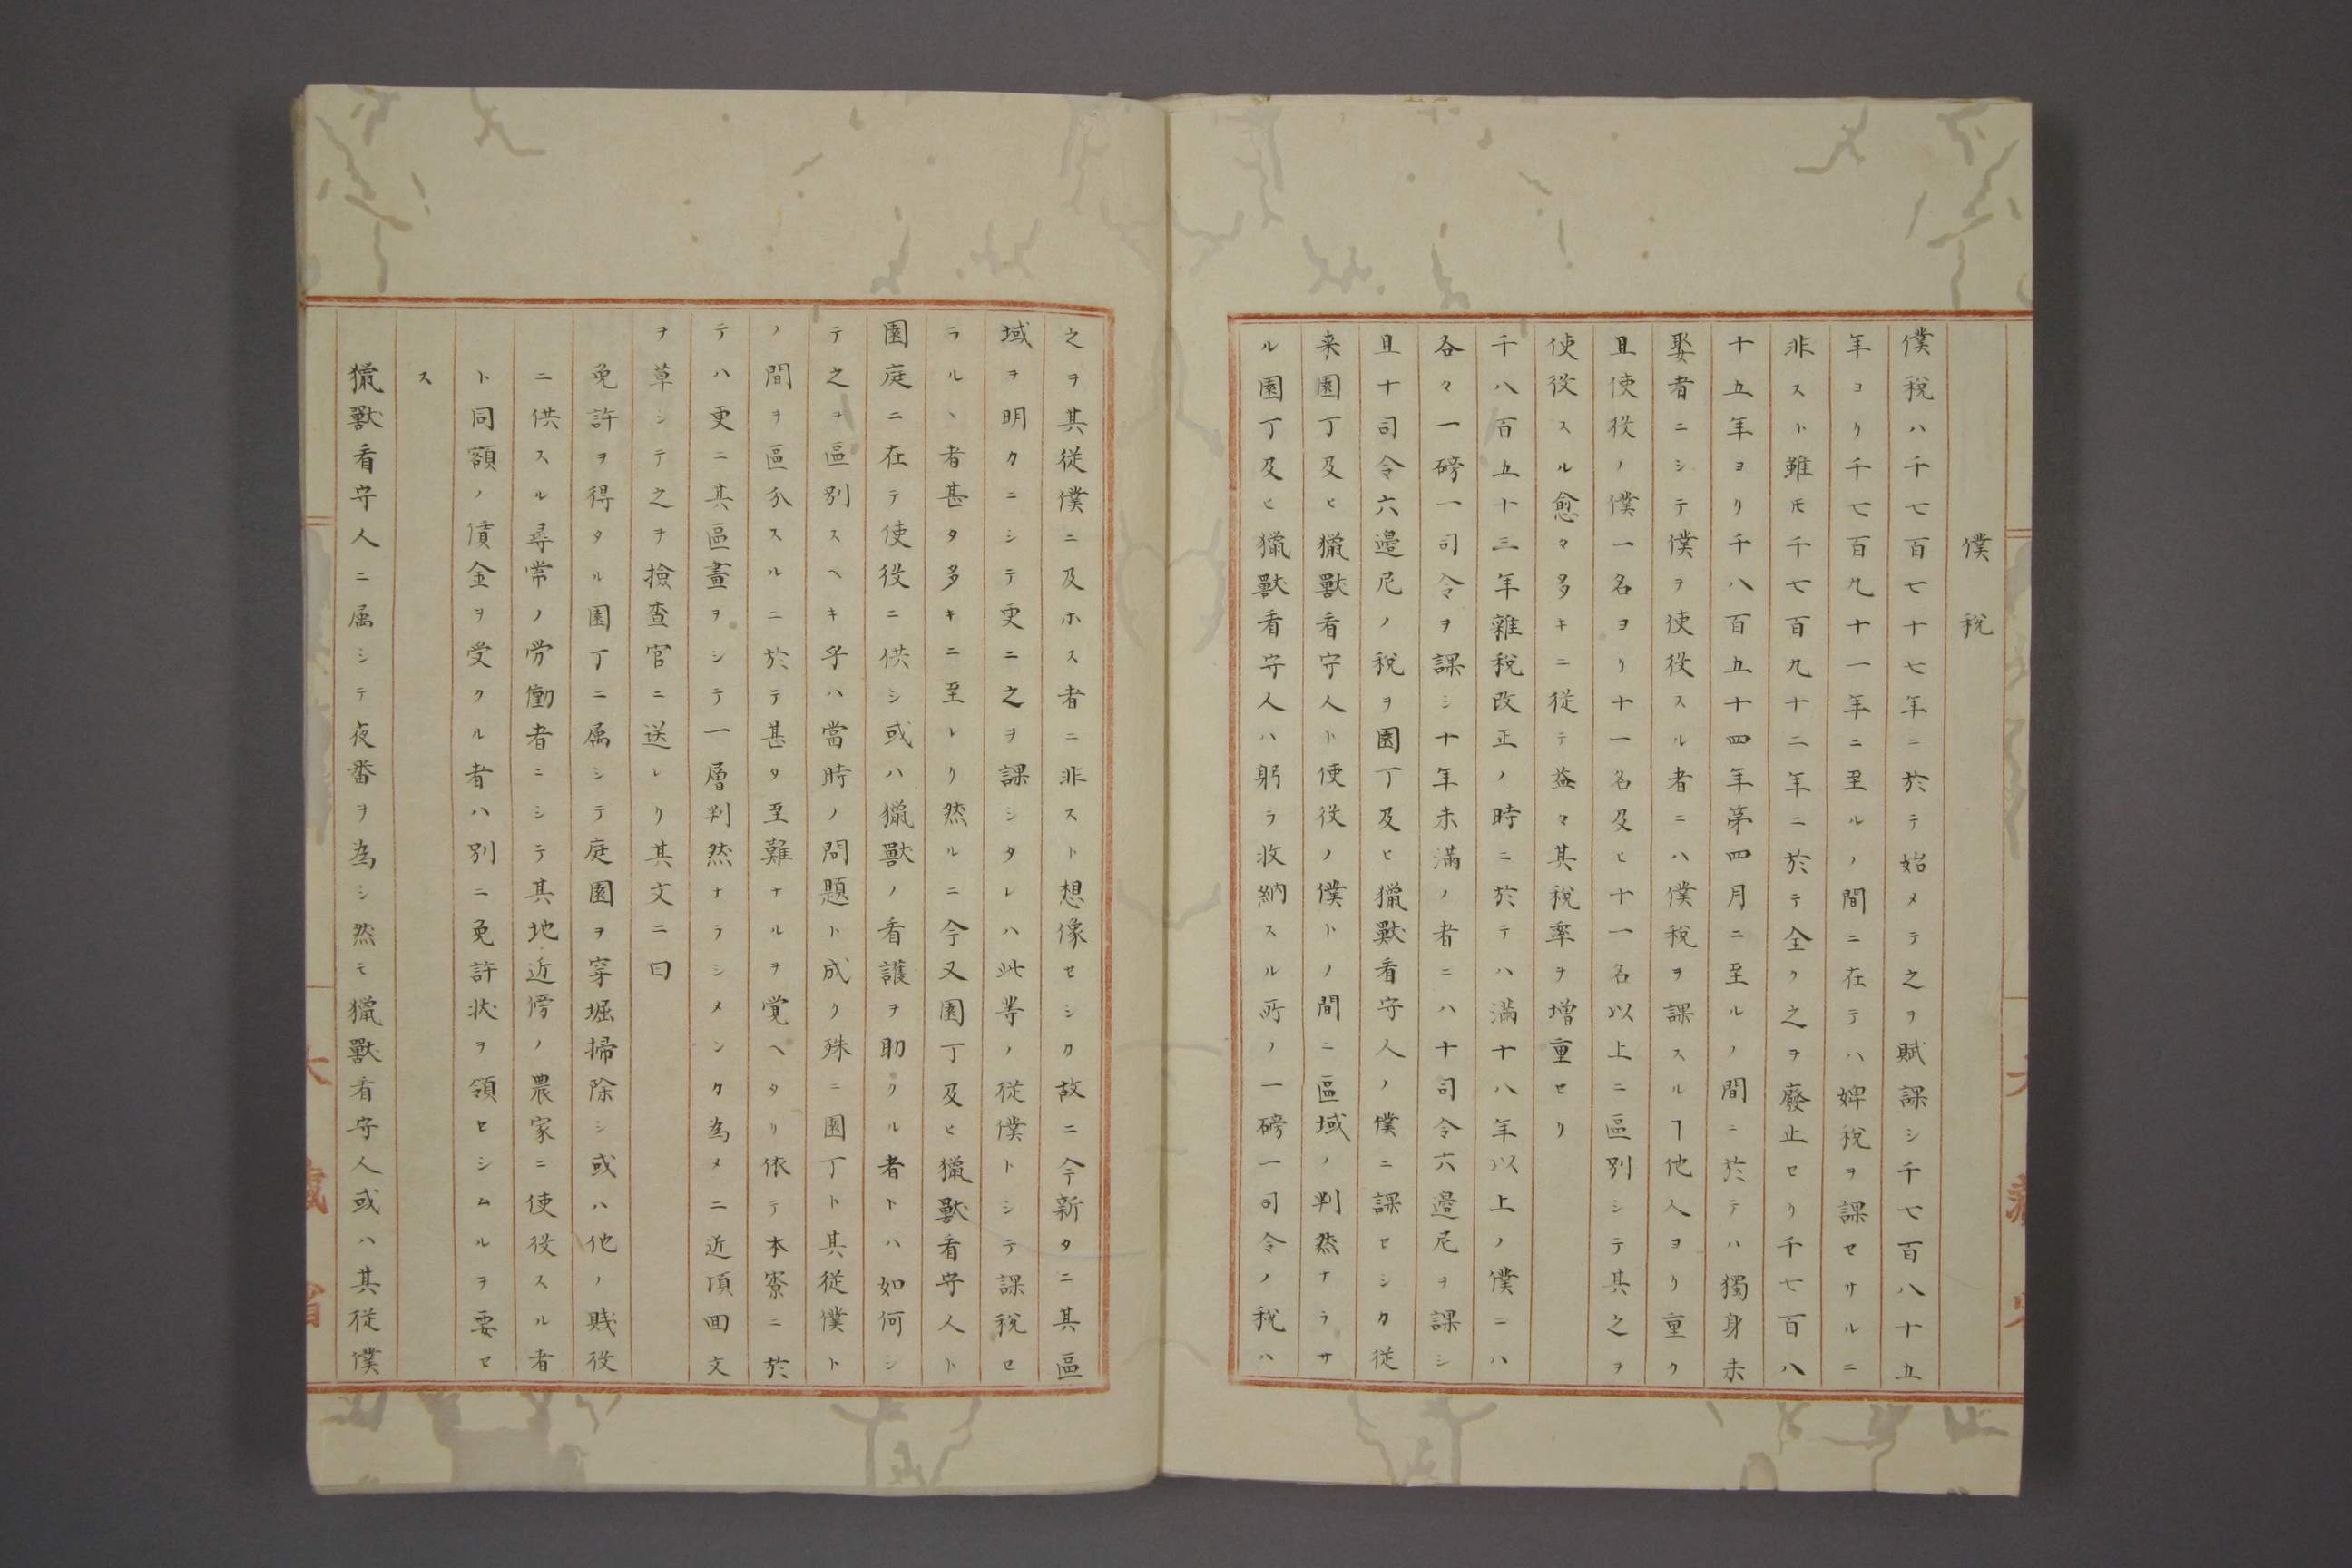 僕税
僕税ハ千七百七十七年ニ於テ始メテ之ヲ賦課シ千七百八十五
年ヨリ千七百九十一年ニ至ルノ間ニ在テハ婢税ヲ課セサルニ
非スト雖𪜈千七百九十二年ニ於テ全ク之ヲ廢止セリ千七百八
十五年ヨリ千八百五十四年第四月ニ至ルノ間ニ於テハ獨身未
娶者ニシテ僕ヲ使役スル者ニハ僕税ヲ課スルヿ他人ヨリ重ク
且使役ノ僕一名ヨリ十一名及ヒ十一名以上ニ區別シテ其之ヲ
使役スル愈々多キニ従テ益々其税率ヲ増重セリ
千八百五十三年雜税改正ノ時ニ於テハ滿十八年以上ノ僕ニハ
各々一磅一司令ヲ課シ十年未滿ノ者ニハ十司令六邉尼ヲ課シ
且十司令六邉尼ノ税ヲ園丁及ヒ獵獸看守人ノ僕ニ課セシカ従
来園丁及ヒ獵獸看守人ト使役ノ僕トノ間ニ區域ノ判然ナラサ
ル園丁及ヒ獵獸看守人ハ躬ラ收納スル所ノ一磅一司令ノ税ハ
之ヲ其従僕ニ及ホス者ニ非スト想像セシカ故ニ今新タニ其區
域ヲ明カニシテ更ニ之ヲ課シタレハ此等ノ従僕トシテ課税セ
ラルヽ者甚タ多キニ至レリ然ルニ今又園丁及ヒ獵獸看守人ト
園庭ニ在テ使役ニ供シ或ハ獵獸ノ看護ヲ助クル者トハ如何シ
テ之ヲ區別スヘキ乎ハ當時ノ問題ト成リ殊ニ園丁ト其従僕ト
ノ間ヲ區分スルニ於テ甚タ至難ナルヲ覚ヘタリ依テ本寮ニ於
テハ更ニ其區畫ヲシテ一層判然ナラシメンカ為メニ近頃囬文
ヲ草シテ之ヲ撿査官ニ送レリ其文ニ曰
免許ヲ得タル園丁ニ属シテ庭園ヲ穿堀掃除シ或ハ他ノ賎役
ニ供スル尋常ノ労働者ニシテ其地近傍ノ農家ニ使役スル者
ト同額ノ債金ヲ受クル者ハ別ニ免許状ヲ領セシムルヲ要セ
ス
獵獸看守人ニ属シテ夜番ヲ為シ然モ獵獸看守人或ハ其従僕